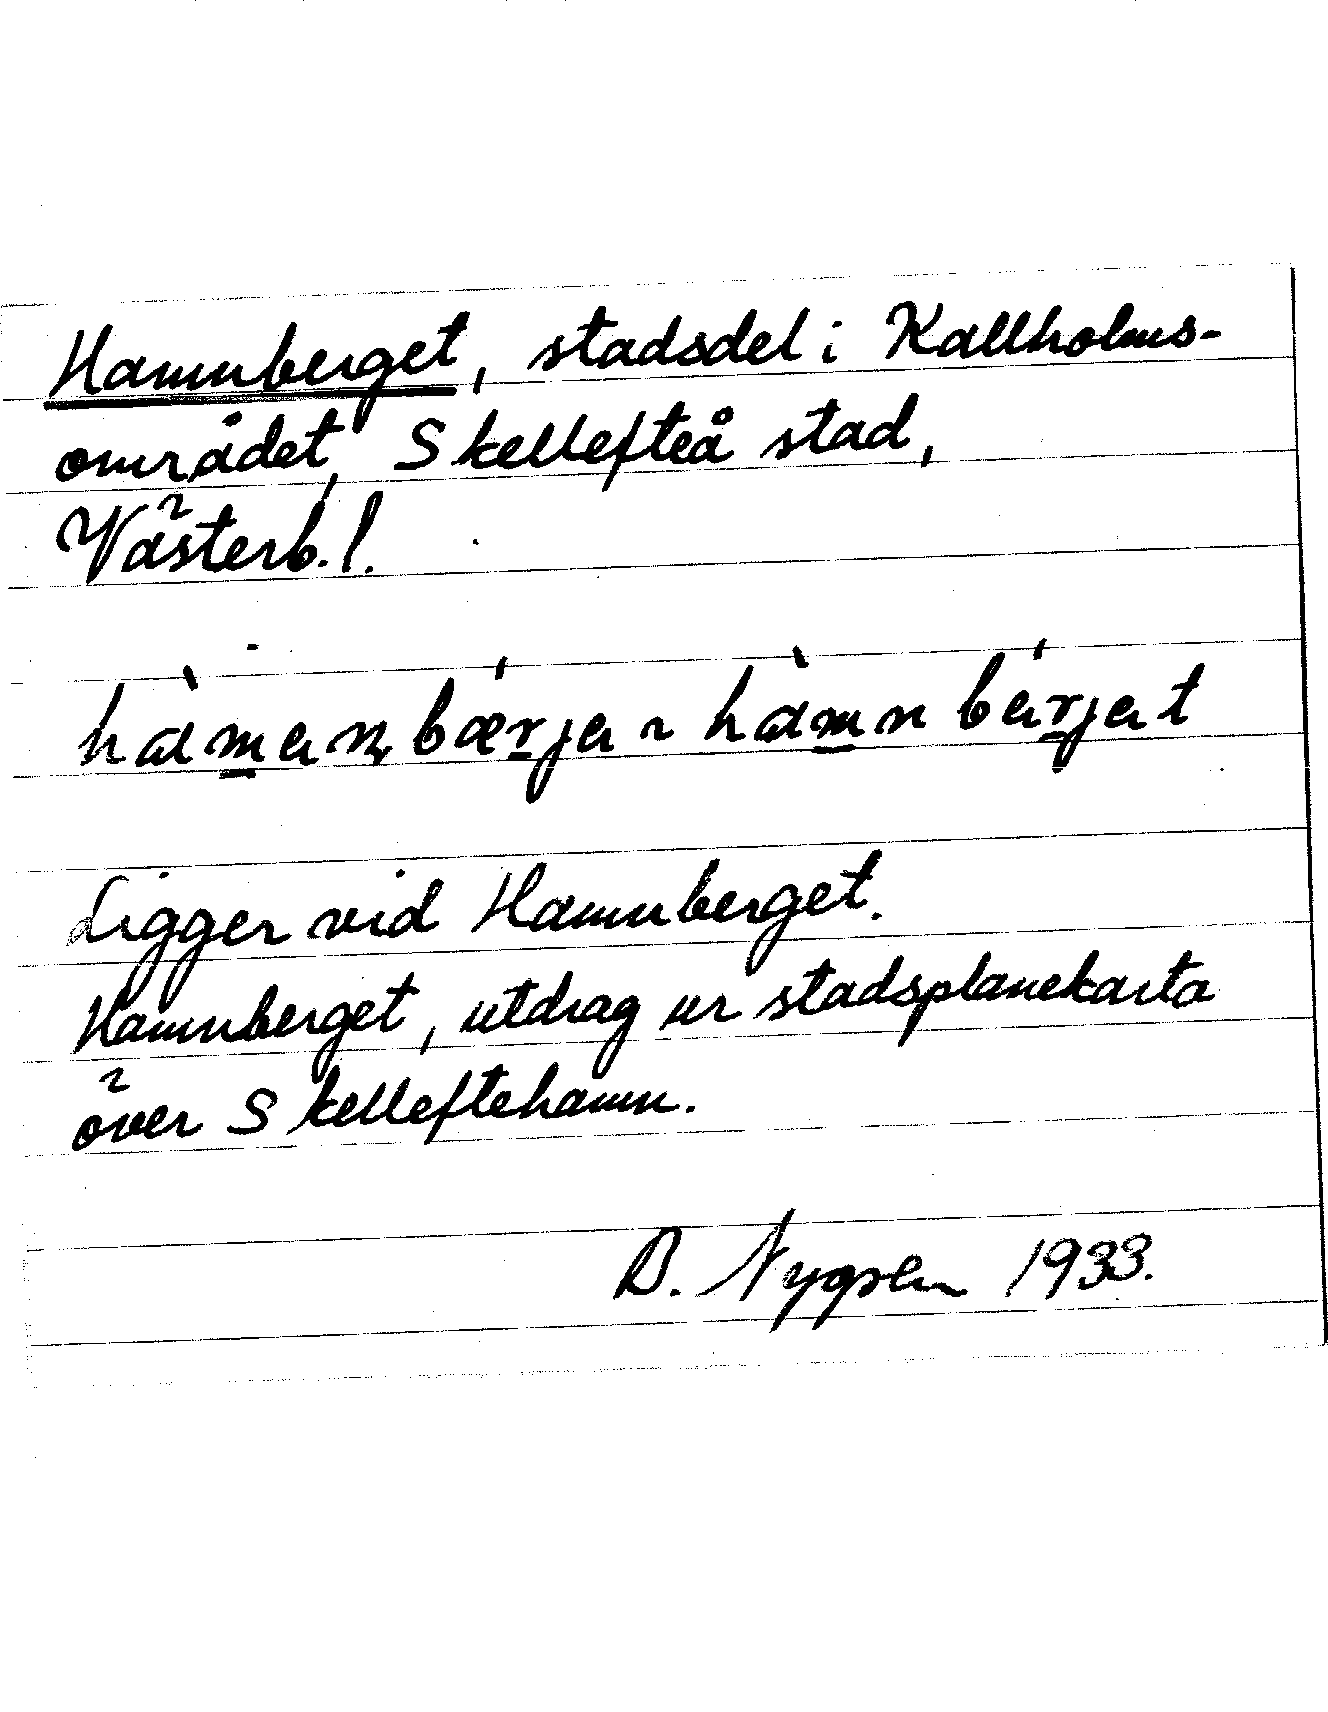 Hamnberget, stadsdel i Kallholms-
området, Skellefteå stad,
Västerb. l.
hàmanbǽrja ~ hàmnbárjat
Ligger vid Hamnberget.
Hamnberget, utdrag ur stadsplanekarta
över Skelleftehamn.
B. Nygren 1933.